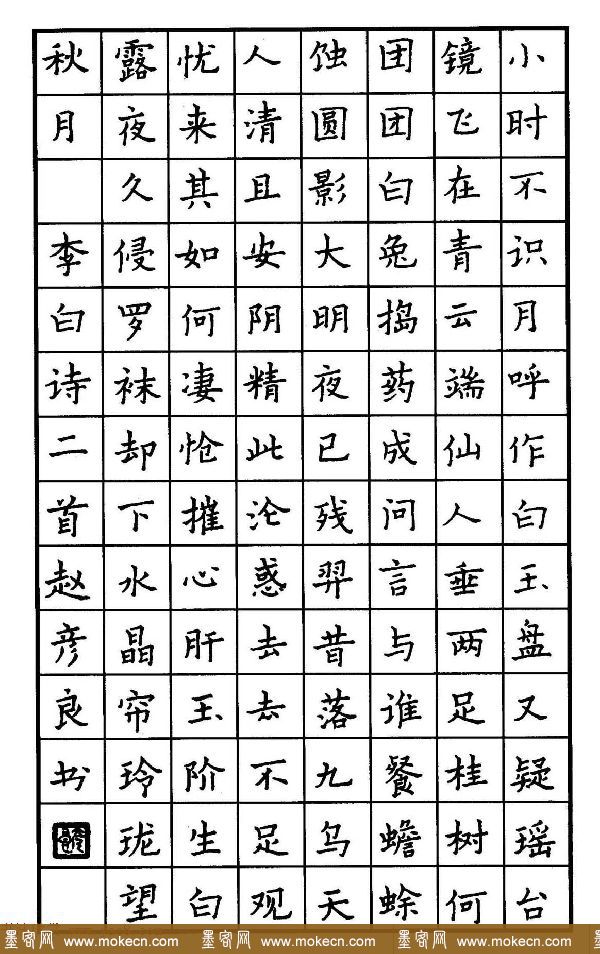 小时不识月呼作白玉盘又疑瑶台
镜飞在青云端仙人垂两足桂树何
团团白兔捣药成问言与谁餐蟾蜍
蚀圆影大明夜已残羿昔落九乌天
人清且安阴精此沦惑去去不足观
忧来其如何凄怆摧心肝玉阶生白
露夜久侵罗袜却下水晶帘玲珑望
秋月 李白诗二首赵彦良书
墨客网 www.mokecn.com 墨客网 www.mokecn.com 墨客网 www.mokecn.com